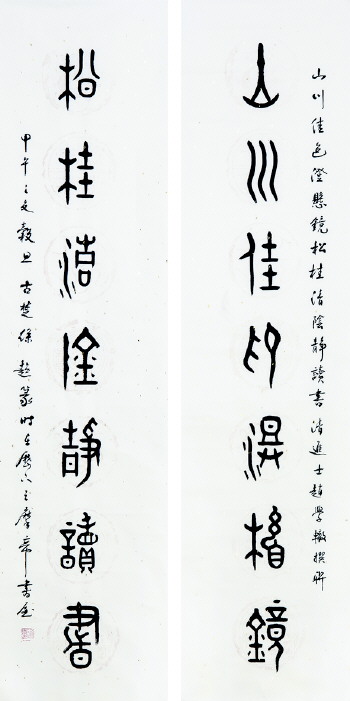 山川佳色澄懸鏡松桂清陰靜讀書清進士趙學轍撰聯
山川佳色澄懸鏡
松桂清陰靜讀書
甲午之文穀旦古楚徐超篆时在廖心之摩帝书屋